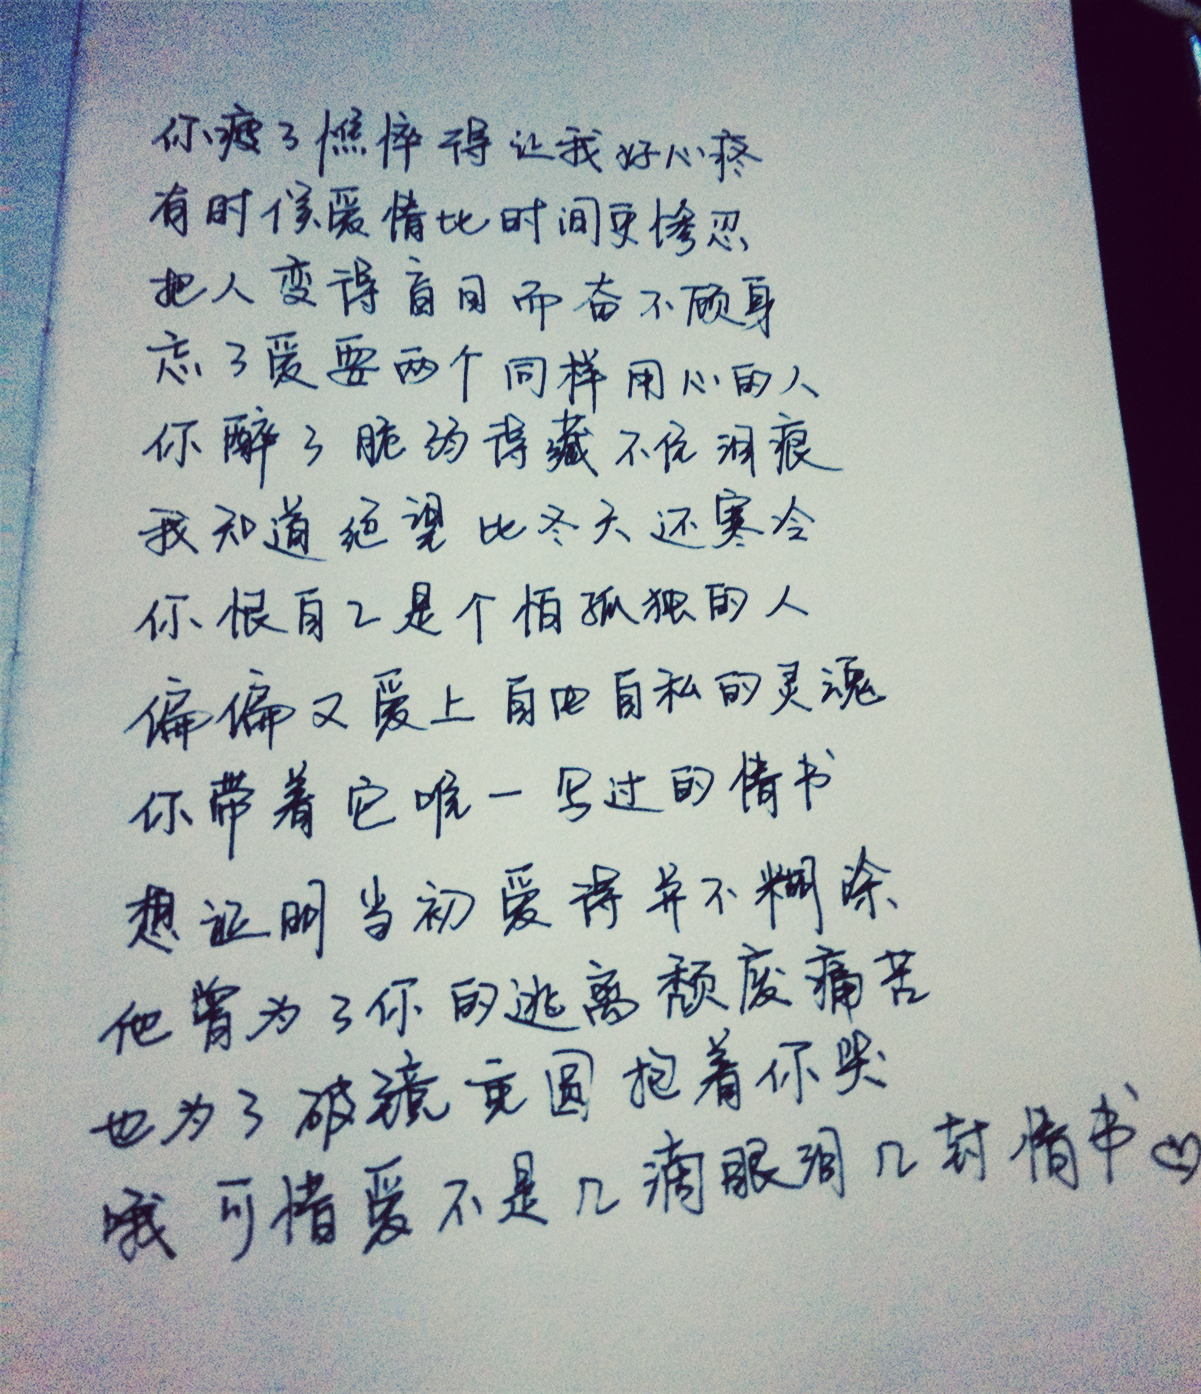 你疲了憔悴得让我好心疼
有时候爱情比时间更惨忍
把人变得盲目而奋不顾身
忘了爱要两个同样用心的人
你醉了脆弱得藏不住泪痕
我知道绝望比冬天还寒冷
你恨自己是个怕孤独的人
偏偏又爱上自由自私的灵魂
你带着它唯一写过的情书
想证明当初爱得并不糊涂
他曾为了你的逃离颓废痛苦
也为了破镜重圆抱着你哭
哦可惜爱不是几滴眼泪几封情书